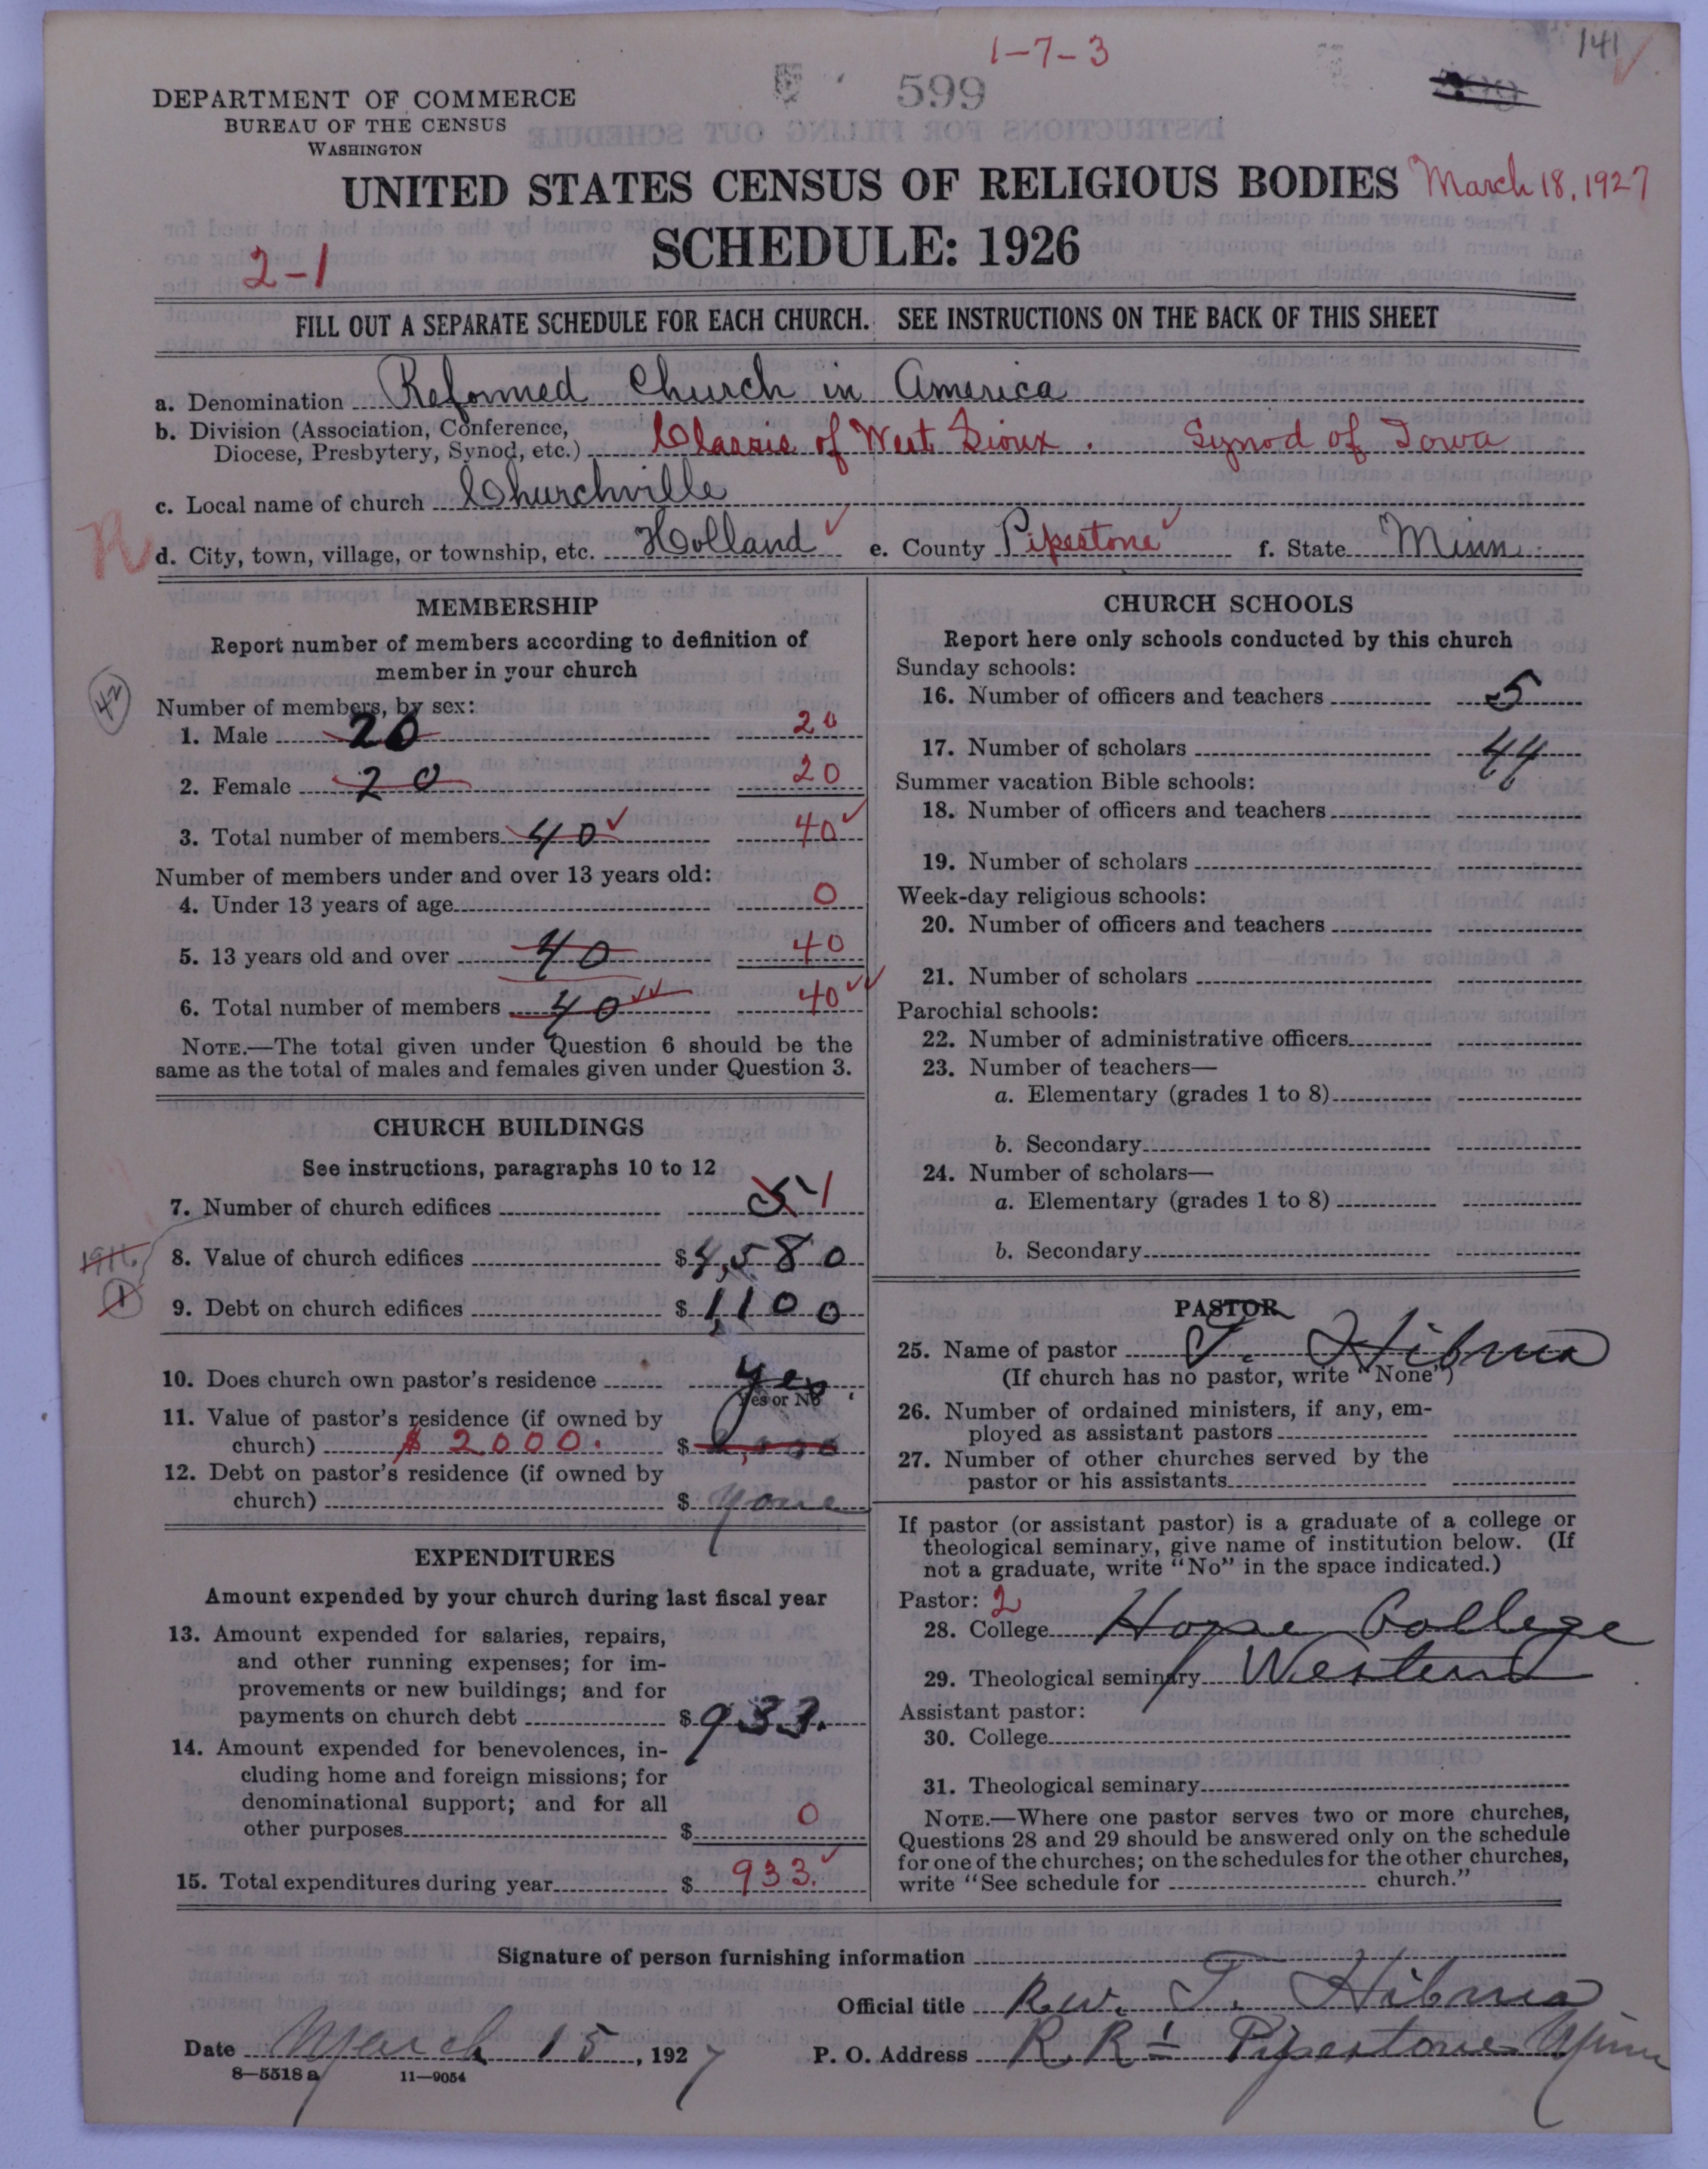 1-7-3
141
599
DEPARTMENT OF COMMERCE
BUREAU OF THE CENSUS
WASHINGTON
UNITED STATES CENSUS OF RELIGIOUS BODIES March 18, 1927
SCHEDULE: 1926
2-1
FILL OUT A SEPARATE SCHEDULE FOR EACH CHURCH. SEE INSTRUCTIONS ON THE BACK OF THIS SHEET
a. Denomination Reformed Church in America
b. Division (Association, Conference,
Diocese, Presbytery, Synod, etc.) Classis of West Sioux. Synod of Iowa
c. Local name of church Churchville
d. City, town, village, or township, etc. Holland e. County Pipestone f. State Minn.
MEMBERSHIP
Report number of members according to definition of
member in your church
42
Number of members, by sex:
1. Male 20 20
2. Female 20 20
3. Total number of members 40 40
Number of members under and over 13 years old:
4. Under 13 years of age 0
5. 13 years old and over 40 40
6. Total number of members 40 40
NOTE.—The total given under Question 6 should be the
same as the total of males and females given under Question 3.
CHURCH BUILDINGS
See instructions, paragraphs 10 to 12
7. Number of church edifices 5 1
8. Value of church edifices $4,580
1916.
1
9. Debt on church edifices $1,100
10. Does church own pastor's residence yes.
Yes or No
11. Value of pastor's residence (if owned by
church) $2000. $2,000
12. Debt on pastor's residence (if owned by
church) $ None
EXPENDITURES
Amount expended by your church during last fiscal year
13. Amount expended for salaries, repairs,
and other running expenses; for im-
provements or new buildings; and for
payments on church debt $933.
14. Amount expended for benevolences, in-
cluding home and foreign missions; for
denominational support; and for all
other purposes $ 0
15. Total expenditures during year $ 933.
CHURCH SCHOOLS
Report here only schools conducted by this church
Sunday schools:
16. Number of officers and teachers 5
17. Number of scholars 44
Summer vacation Bible schools:
18. Number of officers and teachers
19. Number of scholars
Week-day religious schools:
20. Number of officers and teachers
21. Number of scholars
Parochial schools:
22. Number of administrative officers
23. Number of teachers—
a. Elementary (grades 1 to 8)
b. Secondary
24. Number of scholars—
a. Elementary (grades 1 to 8)
b. Secondary
PASTOR
25. Name of pastor T. Hibma
(If church has no pastor, write "None")
26. Number of ordained ministers, if any, em-
ployed as assistant pastors
27. Number of other churches served by the
pastor or his assistants
If pastor (or assistant pastor) is a graduate of a college or
theological seminary, give name of institution below. (If
not a graduate, write "No" in the space indicated.)
Pastor: 2
28. College Hope College
29. Theological seminary Western
Assistant pastor:
30. College
31. Theological seminary
NOTE.—Where one pastor serves two or more churches,
Questions 28 and 29 should be answered only on the schedule
for one of the churches; on the schedules for the other churches,
write "See schedule for church."
Signature of person furnishing information
Official title Rev. T. Hibma
Date March 15, 1927 P. O. Address R. R 1 Pipestone Minn
8—5518a 11—9054